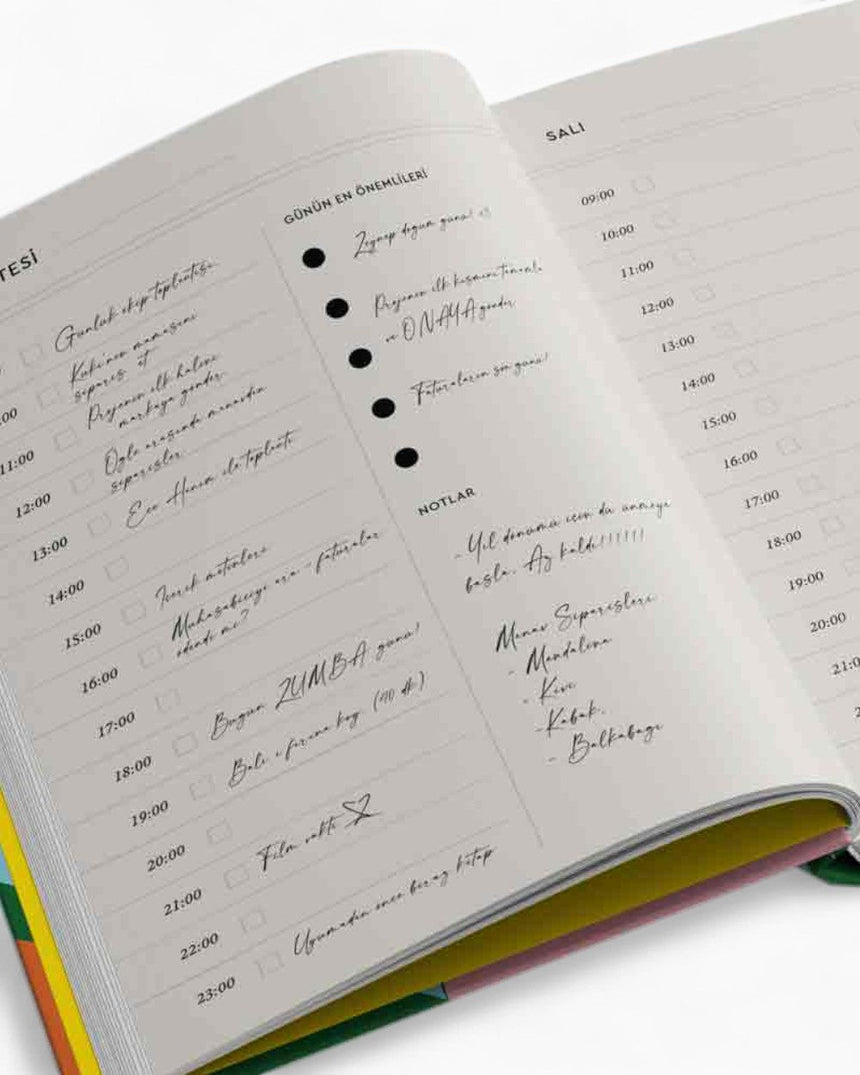 TESİ
Günlük ekip toplantısı
Kuki'nin maması
sipariş et
11:00
Projenin ilk halini
markaya gönder.
12:00
Öğle arasında manavdan
siparişler
13:00
Ece Hanım ile toplantı
14:00
15:00
İçerik metinleri
16:00
Muhasebeciyi ara - faturalar
ödendi mi?
17:00
18:00
Bugün ZUMBA günü!
19:00
Balı ı fırına koy. (40 dk)
20:00
21:00
Film vakti
22:00
23:00
Uyumadan önce biraz kitap
GÜNÜN EN ÖNEMLİLERİ
Zeynep doğum günü!
Projenin ilk kısmını tamamla
ve ONAYA gönder
Faturaların son günü!
NOTLAR
- Yıl dönümü için düşünmeye
başla. Ay kaldı!!!!!!
Manav Siparişleri
- Mandalina
- Kivi
- Kabak.
- Balkabağı
SALI
09:00
10:00
11:00
12:00
13:00
14:00
15:00
16:00
17:00
18:00
19:00
20:00